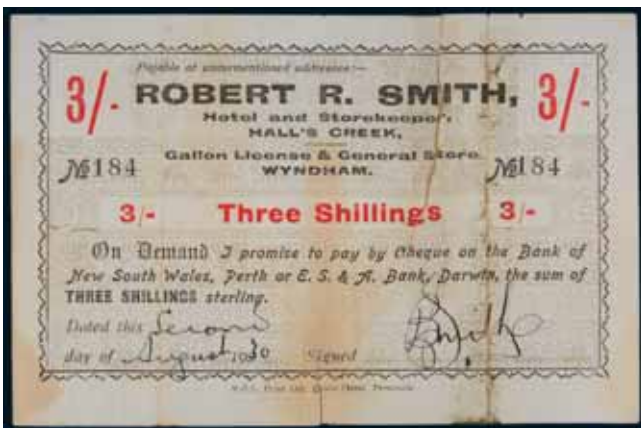 Payable at undermentioned addresses:—
3/- ROBERT R. SMITH, 3/-
Hotel and Storekeeper,
HALL'S CREEK,
Gallon License & General Store
№184 WYNDHAM. №184
3/- Three Shillings 3/-
On Demand I promise to pay by Cheque on the Bank of
New South Wales, Perth or E. S. & A. Bank, Darwin, the sum of
THREE SHILLINGS sterling.
Dated this Second
day of August 1930 Signed RSmith